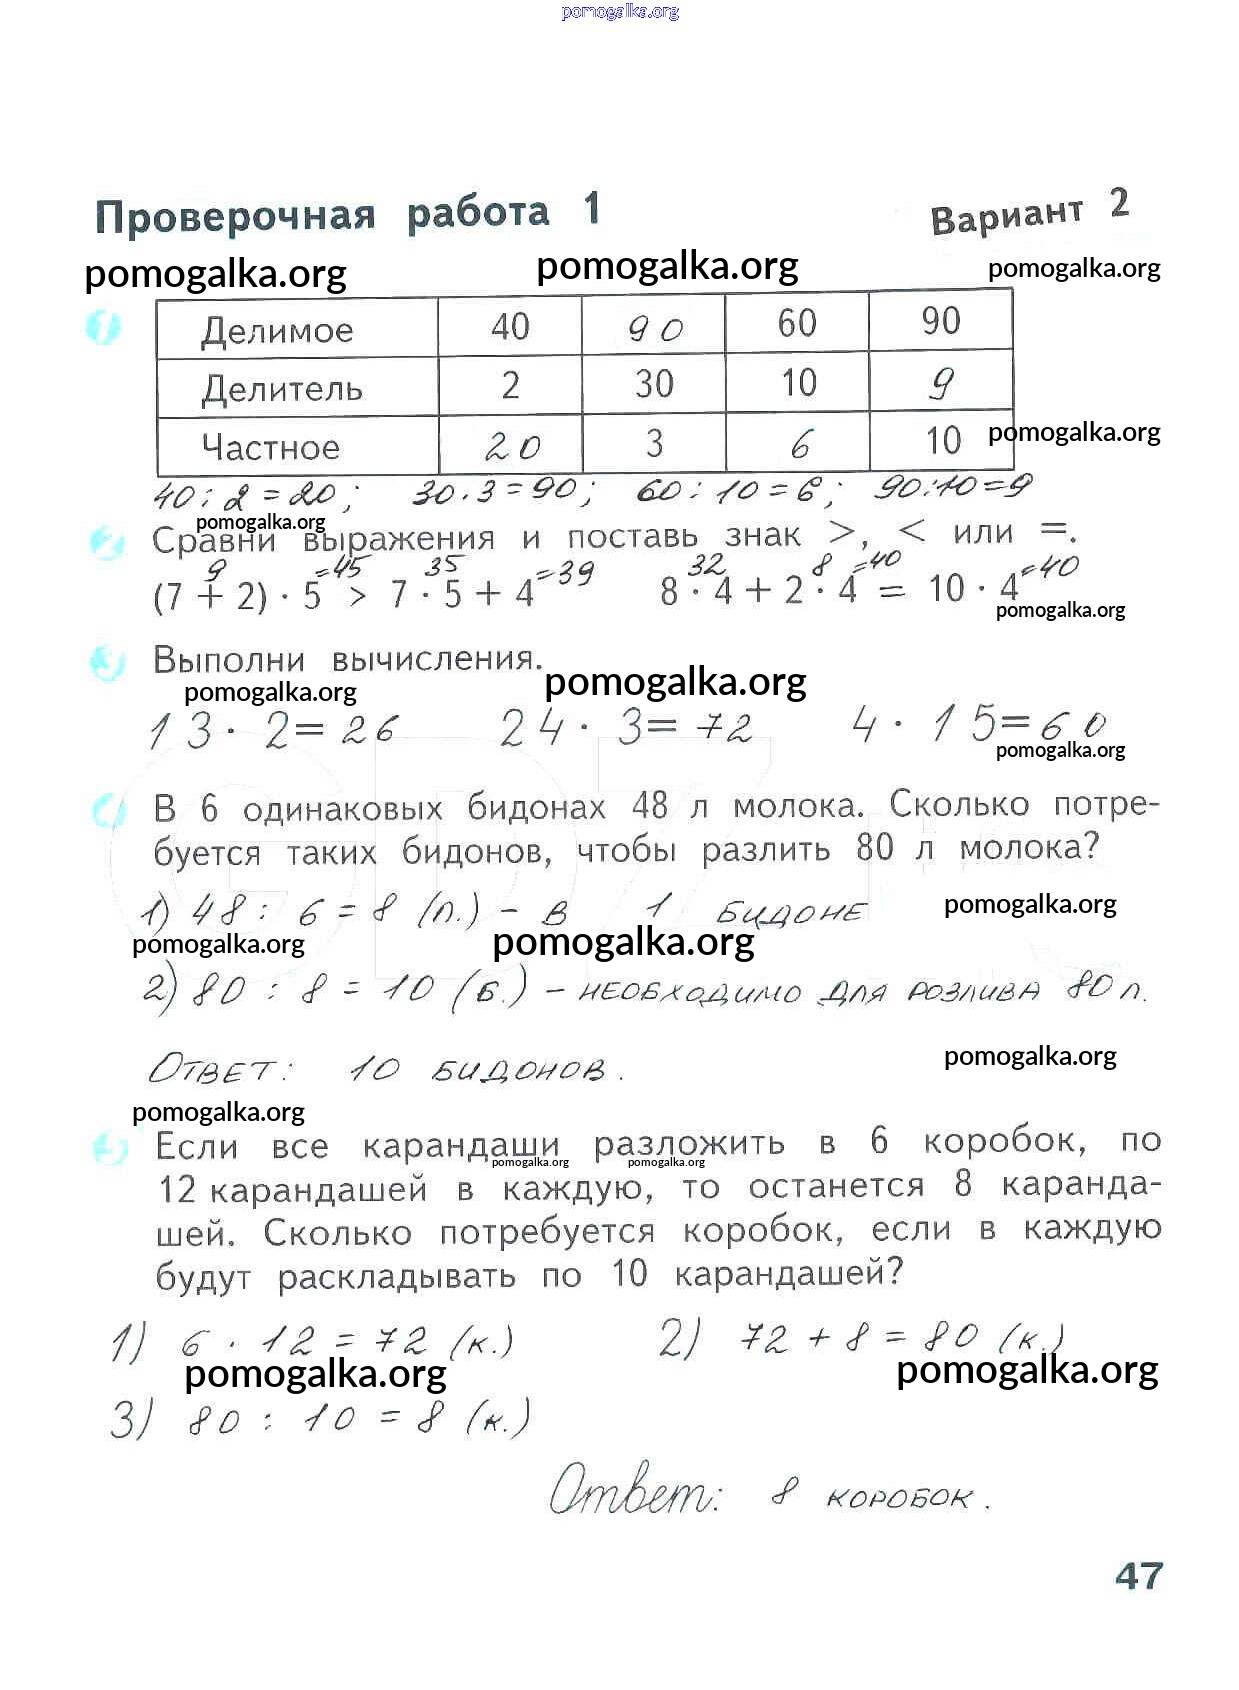 pomogalka.org
Проверочная работа 1 Вариант 2
pomogalka.org pomogalka.org pomogalka.org
1 Делимое 40 90 60 90
Делитель 2 30 10 9
Частное 20 3 6 10
pomogalka.org
40 : 2 = 20; 30 · 3 = 90; 60 : 10 = 6; 90 : 10 = 9
pomogalka.org
2 Сравни выражения и поставь знак >, < или =.
9 =45 35 =39 32 8 =40 =40
(7 + 2) · 5 > 7 · 5 + 4 8 · 4 + 2 · 4 = 10 · 4
pomogalka.org
3 Выполни вычисления.
pomogalka.org pomogalka.org
13 · 2 = 26 24 · 3 = 72 4 · 15 = 60
pomogalka.org
4 В 6 одинаковых бидонах 48 л молока. Сколько потре-
буется таких бидонов, чтобы разлить 80 л молока?
1) 48 : 6 = 8 (л.) – в 1 бидоне
pomogalka.org
pomogalka.org pomogalka.org
2) 80 : 8 = 10 (б.) – необходимо для розлива 80 л.
Ответ: 10 бидонов.
pomogalka.org
pomogalka.org
5 Если все карандаши разложить в 6 коробок, по
pomogalka.org pomogalka.org
12 карандашей в каждую, то останется 8 каранда-
шей. Сколько потребуется коробок, если в каждую
будут раскладывать по 10 карандашей?
1) 6 · 12 = 72 (к.) 2) 72 + 8 = 80 (к.)
pomogalka.org pomogalka.org
3) 80 : 10 = 8 (к.)
Ответ: 8 коробок.
47